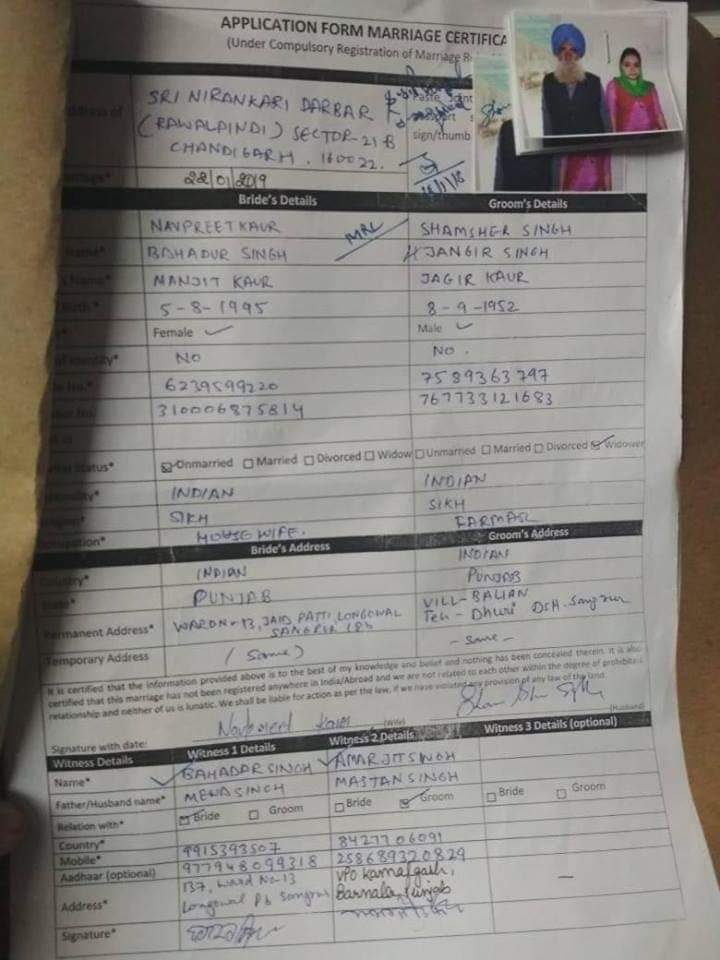 APPLICATION FORM MARRIAGE CERTIFICA
(Under Compulsory Registration of Marriage
SRI NIRANKARI DARBAR
(RAWALPINDI) SECTOR-21 B
CHANDIGARH. 160022.
Paste Joint
sign/thumb
22/01/2019
Bride's Details Groom's Details
NAVPREET KAUR SHAMSHER SINGH
Name* BAHADUR SINGH JANGIR SINGH
Name* MANJIT KAUR JAGIR KAUR
5-8-1995 8-9-1952
Female Male
NO NO.
6239599220 7589363797
310006875814 767733121683
Status* Unmarried Married Divorced Widow Unmarried Married Divorced Widower
INDIAN INDIAN
SIKH SIKH
HOUSE WIFE. FARMAR
Bride's Address Groom's Address
Country* INDIAN INDIAN
PUNJAB PUNJAB
Permanent Address* WARDN-13, JAID PATTI, LONGOWAL VILL-BALIAN
Teh-Dhuri Distt. Sangrur
Temporary Address (Same) -same-
It is certified that the information provided above is to the best of my knowledge and belief and nothing has been concealed therein. It is also
certified that this marriage has not been registered anywhere in India/Abroad and we are not related to each other within the degree of prohibited
relationship and neither of us is lunatic. We shall be liable for action as per the law, if we have violated any provision of any law of the land.
Signature with date: Navpreet Kaur (Wife) (Husband)
Witness Details Witness 1 Details Witness 2 Details Witness 3 Details (optional)
Name* BAHADAR SINGH AMARJIT SINGH
Father/Husband name* MENA SINGH MASTAN SINGH
Relation with* Bride Groom Bride Groom Bride Groom
Country*
Mobile* 9915393507 8427706091
Aadhaar (optional) 977948099318 258689320829
Address* 137, Ward No-13 VPO
Longowal Pb Sangrur Barnala, Punjab
Signature*